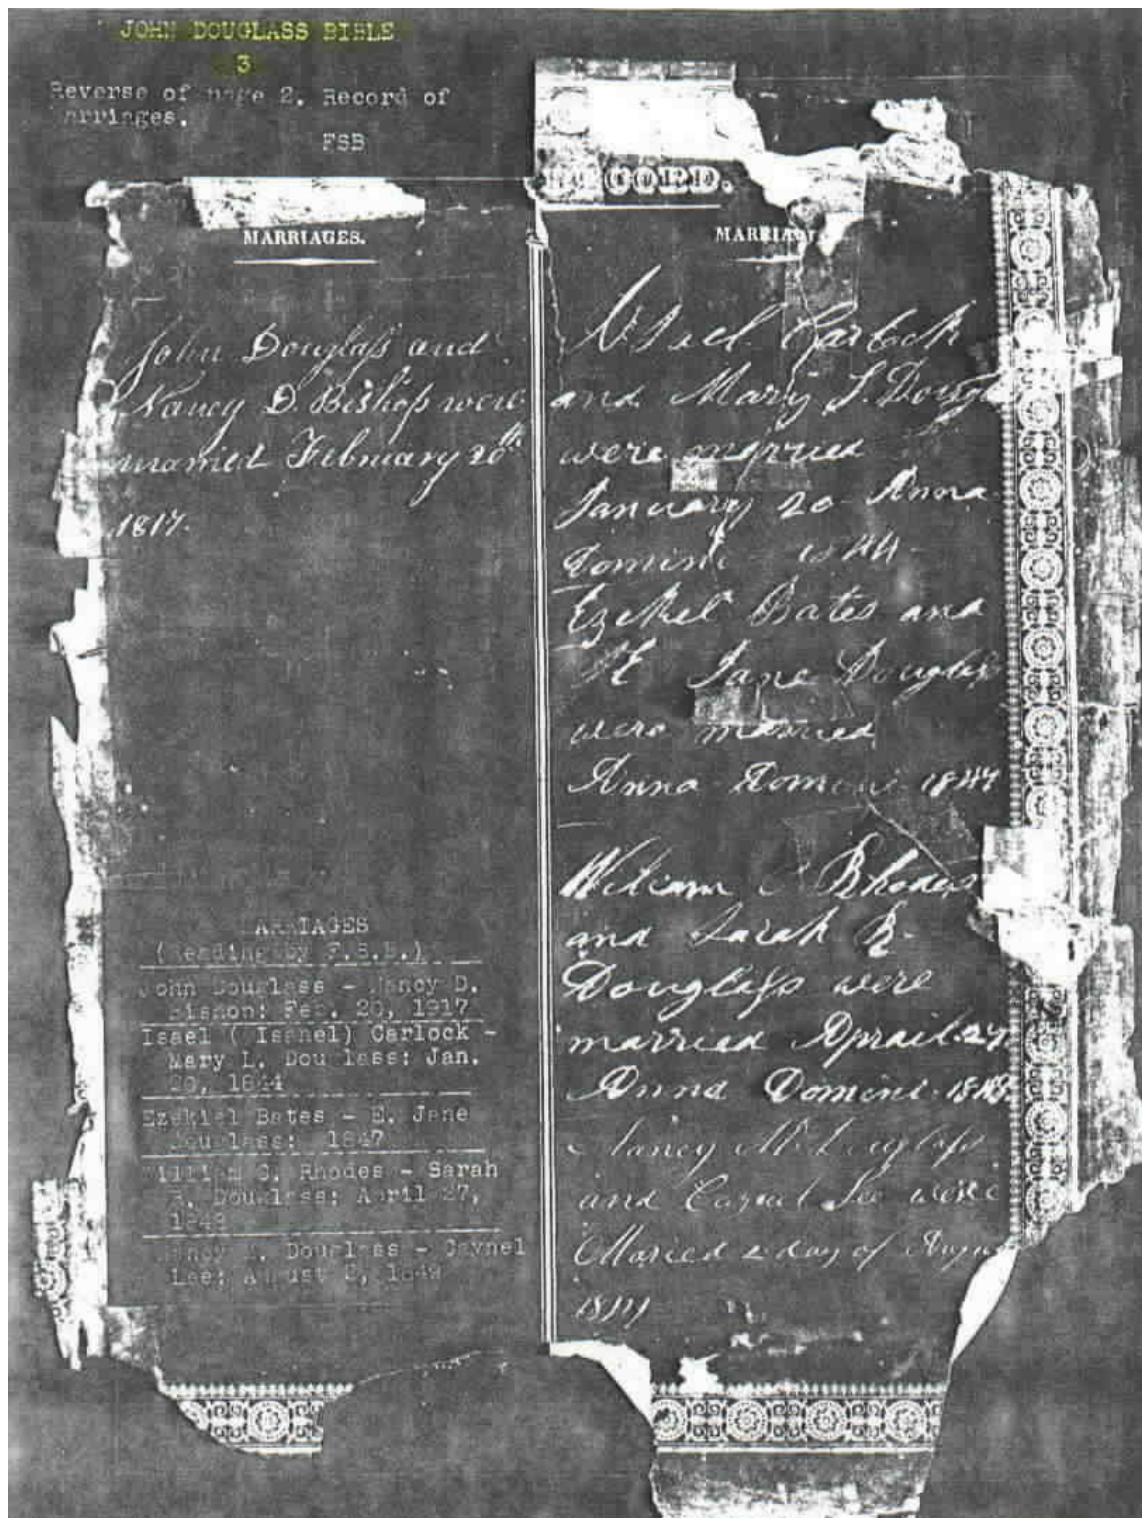 JOHN DOUGLASS BIBLE
3
Reverse of page 2. Record of
Marriages.
FSB
RECORD.
MARRIAGES.
John Douglass and
Nancy D. Bishop were
married February 20th
1817.
ARRIAGES
(Reading by F.S.B.)
John Douglass - Nancy D.
Bishop: Feb. 20, 1917
Isael (Isahel) Carlock -
Mary L. Douglass: Jan.
20, 1844
Ezekiel Bates - E. Jane
Douglass: 1847
William C. Rhodes - Sarah
R. Douglass: April 27,
1848
Nancy M. Douglass - Caynel
Lee: August 2, 1849
MARRIAG
Isael Carlock
and Mary L. Dougl
were married
January 20 Anna
Domini 1844
Ezekel Bates and
E Jane Douglass
were married
Anna Domini 1847
William C Rhodes
and Sarah R.
Douglass were
married Aprail 27
Anna Domini 1848.
Nancy M. Duglass
and Caynel Lee were
Maried 2 day of Augus